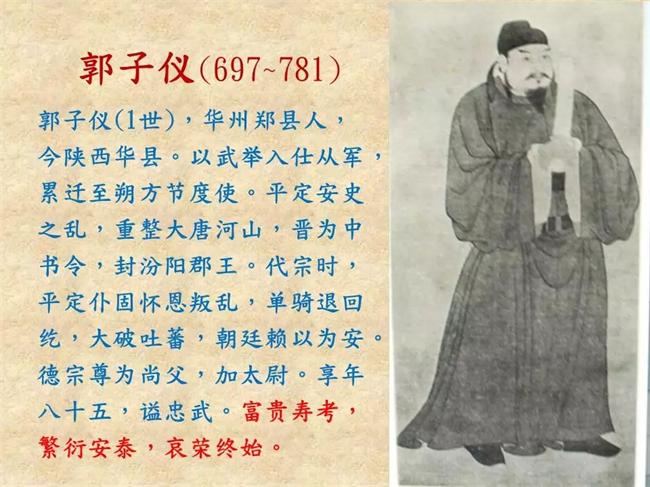 郭子仪(697~781)
郭子仪(1世)，华州郑县人，
今陕西华县。以武举入仕从军，
累迁至朔方节度使。平定安史
之乱，重整大唐河山，晋为中
书令，封汾阳郡王。代宗时，
平定仆固怀恩叛乱，单骑退回
纥，大破吐蕃，朝廷赖以为安。
德宗尊为尚父，加太尉。享年
八十五，谥忠武。富贵寿考，
繁衍安泰，哀荣终始。